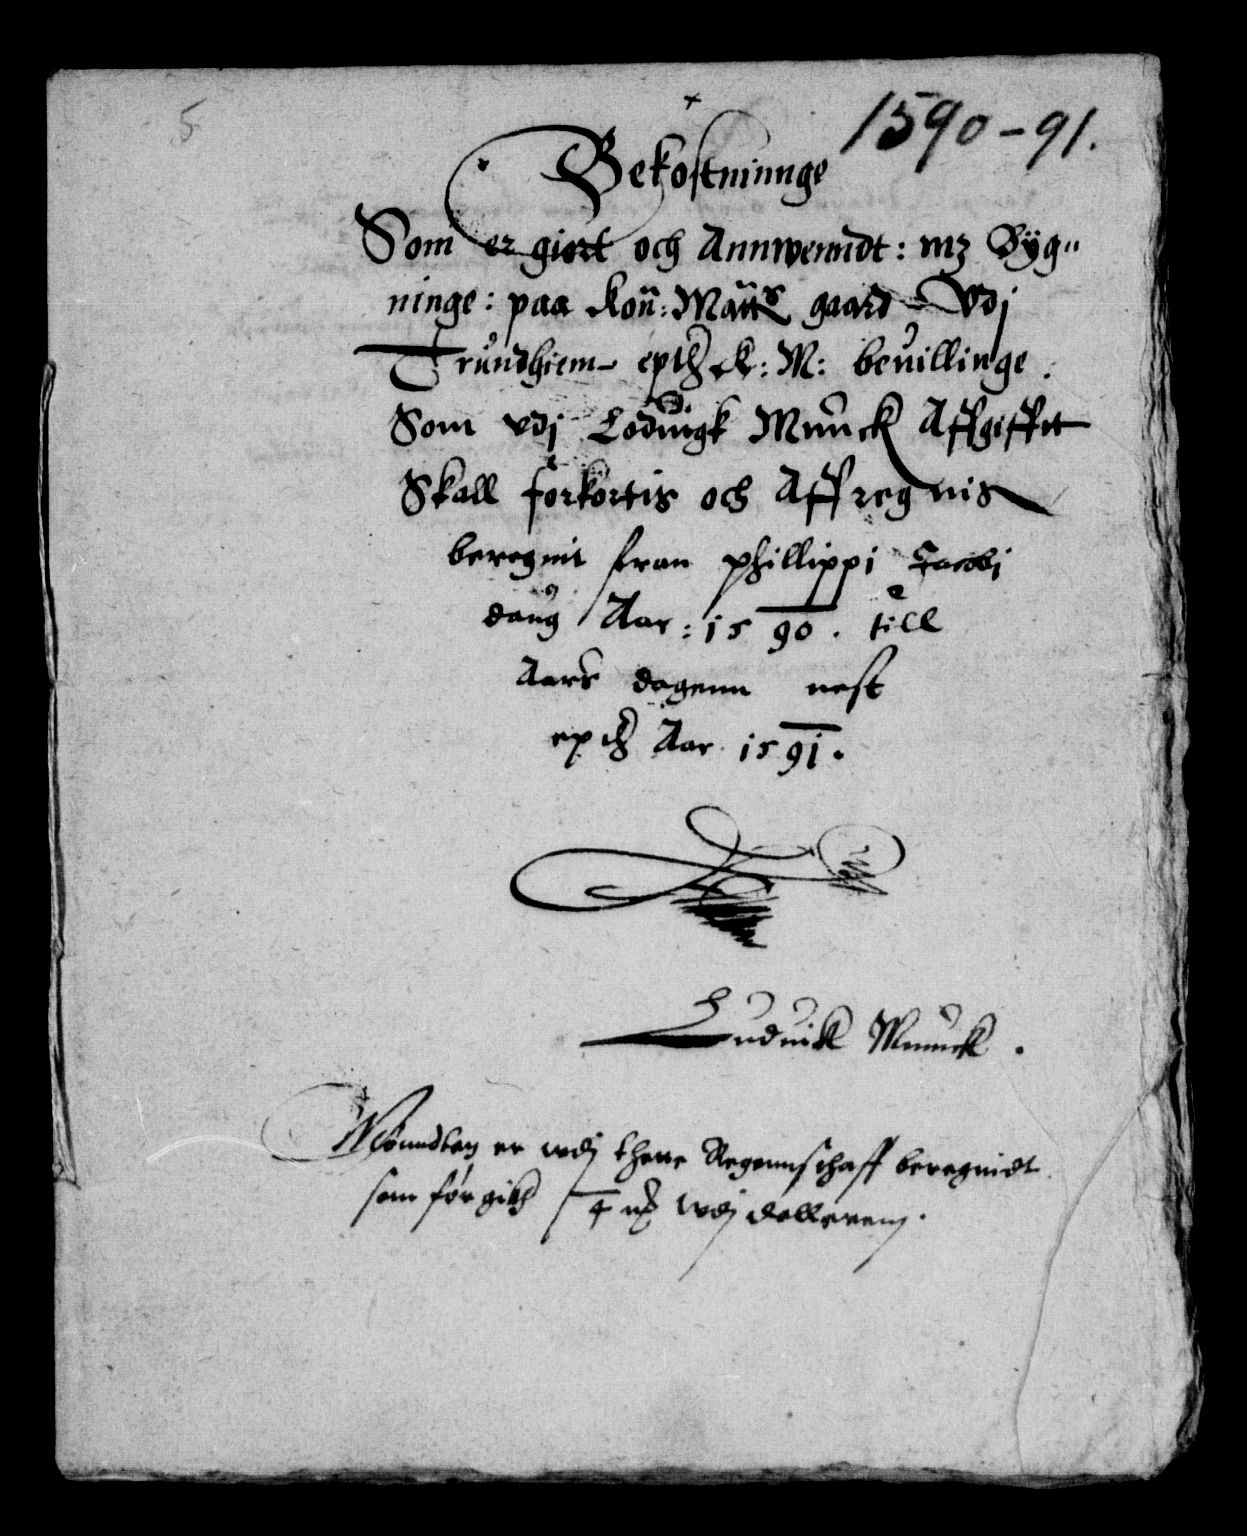 5
1590-91.
Bekostninnge
Som er giort och Annwenndt: mz Byg"
ninge: paa Kon: Matts gaard Vdj
Trundhiem epther K: M: bevillinge.
Som vdj Lodvigk Munck Affgifftt
Skall forkortis och Affregnis
beregnit fran phillippi Jacobi
daug Aar: 1590. till
Aars dagenn nest
epther Aar 1591.
Luduik Munck.
Mønndten er wdj thene Regennschaff beregnidt
som før gikh wdj dallerenn.